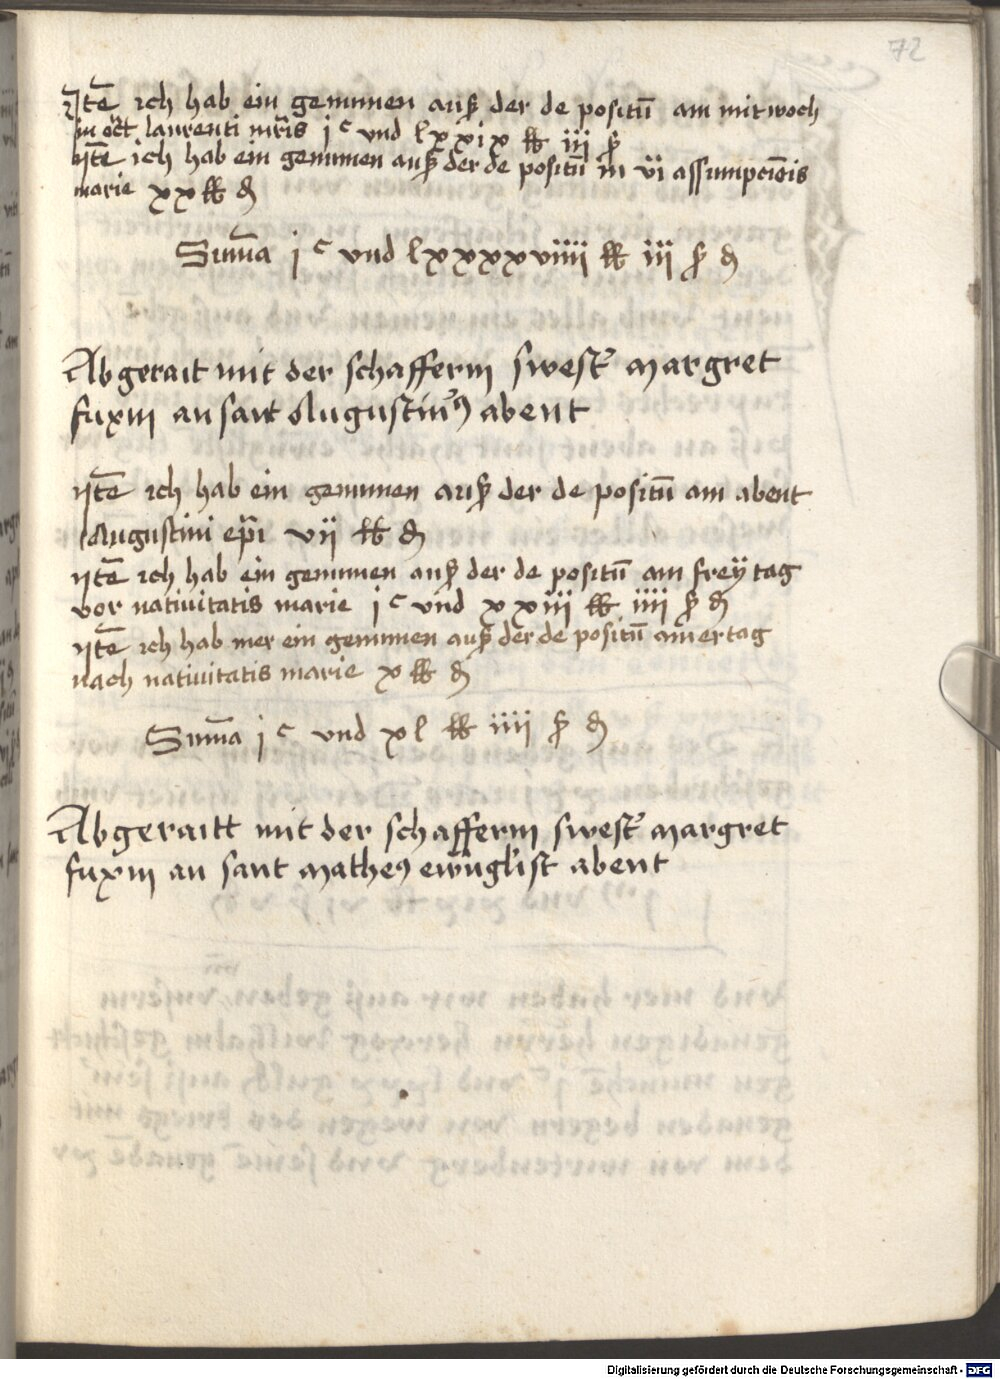 72
Itē ich hab ein genumen auſz der de poſitū am mitwoch
in oct laurenti mris jc und lxxix ℔ iij ß
Itē ich hab ein genumen auſz der de poſitū in vi aſſumpcōis
marie xx ℔ ₰
Sum̄a jc und lxxxxviiii ℔ iij ß ₰
Abgerait mit der ſchafferin ſweſt' margret
fuxin an ſant Auguſtin9 abent
Itē ich hab ein genumen auſz der de poſitū am abent
Auguſtini ep̄i vij ℔ ₰
Itē ich hab ein genumen auſz der de poſitū am freÿtag
vor natiuitatis marie jc und xxiij ℔ iiij ß ₰
Itē ich hab mer ein genumen auſz der de poſitū am ertag
nach natiuitatis marie x ℔ ₰
Sum̄a jc und xl ℔ iiij ß ₰
Abgeraitt mit der ſchafferin ſweſt' margret
fuxin an ſant Mathe9 ewāgl'iſt abent
Digitalisierung gefördert durch die Deutsche Forschungsgemeinschaft - DFG